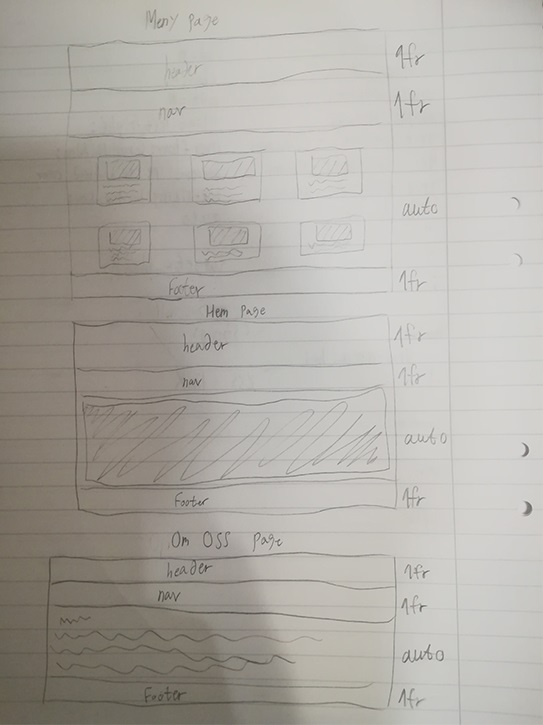 Meny page
header 1fr
nav 1fr
auto
Footer 1fr
Hem page
header 1fr
nav 1fr
auto
Footer 1fr
Om OSS page
header 1fr
nav 1fr
auto
Footer 1fr